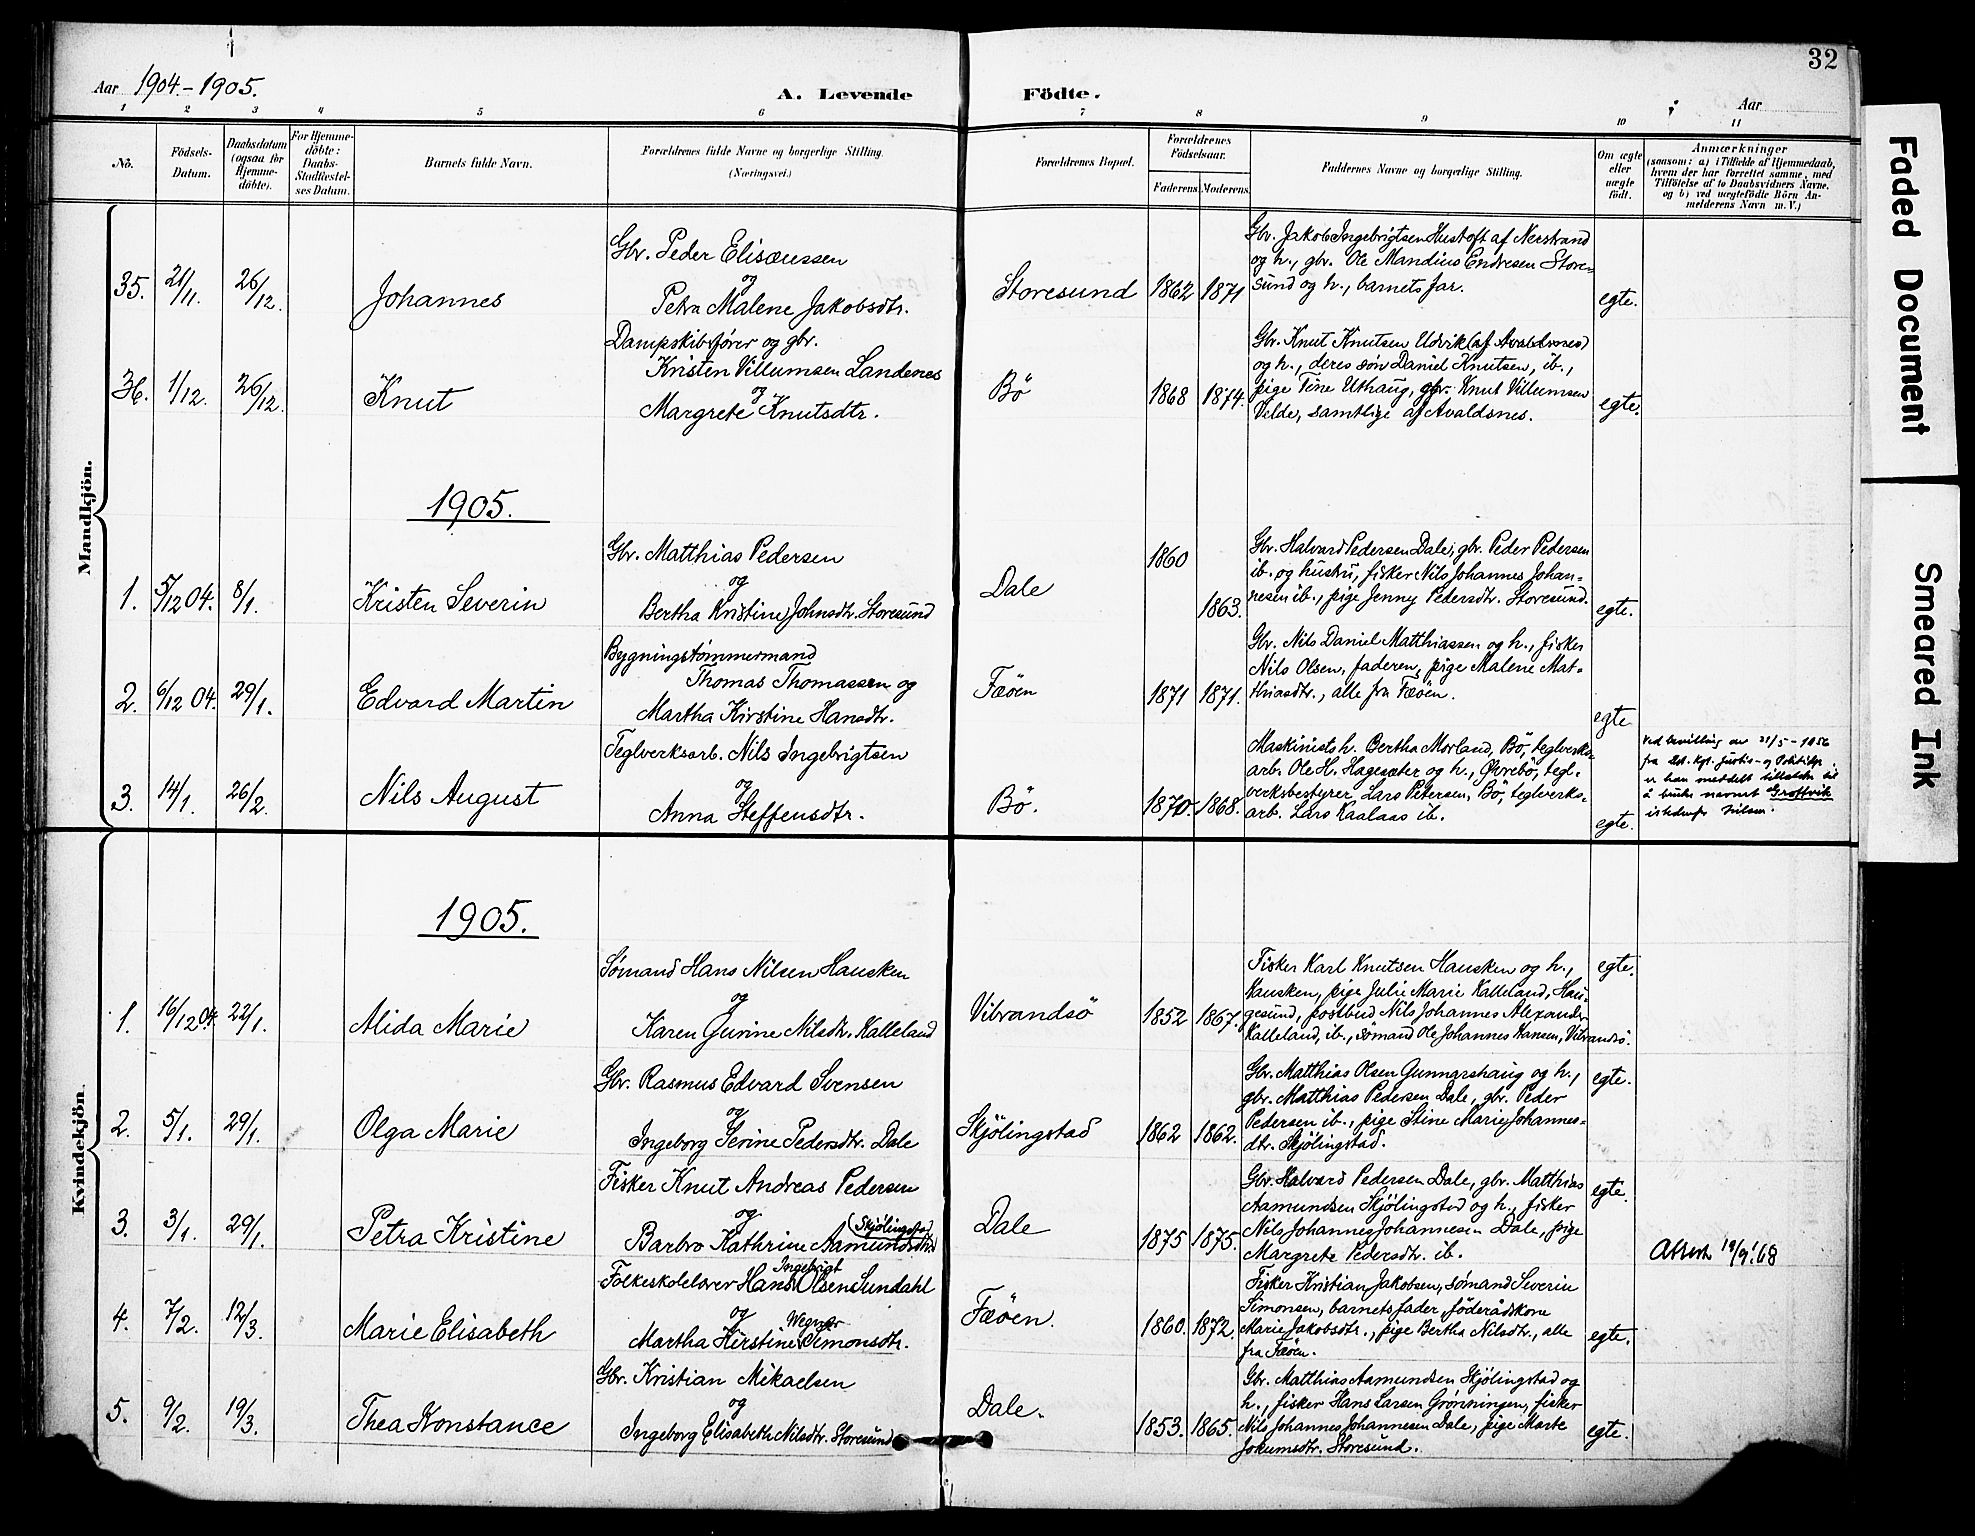 32
Aar 1904.-1905.
A. Levende Födte.
Aar
1 2 3 4 5 6 7 8 9 10 11
No.
Födsels-Datum.
Daabsdatum (ogsaa for Hjemme-döbte).
For Hjemme-döbte: Daabs-Stadfæstel-ses Datum.
Barnets fulde Navn.
Forældrenes fulde Navne og borgerlige Stilling. (Næringsvei.)
Forældrenes Bopæl.
Forældrenes Födselsaar.
Faderens. Moderens.
Faddernes Navne og borgerlige Stilling.
Om ægte eller uægte födt.
Anmærkninger
(saasom: a) i Tilfælde af Hjemmedaab,
hvem der har forrettet samme, med
Tilföielse af to Daabsvidners Navne.
og b) ved uægtefödte Börn An-
melderens Navn m. V.)
Mandkjön.
35. 21/11. 26/12. Johannes
Gbr. Peder Elisæussen
og
Petra Malene Jakobsdtr.
Storesund 1862 1871
Gbr. Jakob Ingebrigtsen Hustoft af Nerstrand
og h., gbr. Ole Mandius Endresen Store-
sund og h., barnets far.
egte.
36. 1/12. 26/12. Knut
Dampskibsfører og gbr.
Kristen Villumsen Landenes
og
Margrete Knutsdtr.
Bö 1868 1874.
Gbr. Knut Knutsen Udvik (af Avaldsnes)
og h., deres søn Daniel Knutsen, ib.,
pige Tine Uthaug, gbr. Knut Villumsen
Velde, samtlige af Avaldsnes.
egte.
1905.
1. 5/12 04. 8/1. Kristen Severin
Gbr. Matthias Pedersen
og
Bertha Kristine Johnsdtr. Storesund
Dale 1860 1863.
Gbr. Halvard Pedersen Dale, gbr. Peder Pedersen
ib. og hustru, fisker Nils Johannes Johan-
nesen ib., pige Jenny Pedersdtr. Storesund.
egte.
2. 6/12 04. 29/1. Edvard Martin
Bygningstømmermand
Thomas Thomassen og
Martha Kirstine Hansdtr.
Fæöen 1871 1871.
Gbr. Nils Daniel Matthiassen og h., fisker
Nils Olsen, faderen, pige Malene Mat-
thiasdtr., alle fra Fæöen.
egte
3. 14/1. 26/2. Nils August
Teglverksarb. Nils Ingebrigtsen
og
Anna Steffensdtr.
Bö. 1870. 1868.
Maskinists h. Bertha Morland, Bö, teglverks-
arb. Ole H. Hagesæter og h., Øvrebö, tegl-
verksbestyrer Lars Petersen, Bö, teglverks-
arb. Lars Kaalaas ib.
egte.
Ved bevilling av 31/5-1956
fra Det. kgl. Justis- og Politidep.
er han meddelt tillatelse til
å bruke navnet Grottvik
istedenfor Nilsen.
Kvindekjön.
1905.
1. 16/12 04. 22/1. Alida Marie
Sømand Hans Nilsen Hausken
og
Karen Gurine Nilsdtr. Kalleland
Vibrandsö 1852 1867.
Fisker Karl Knutsen Hausken og h.,
Hausken, pige Julie Marie Kalleland, Hau-
gesund, postbud Nils Johannes Alexander
Kalleland, ib., sömand Ole Johannes Hansen, Vibrandsö.
egte.
2. 5/1. 29/1. Olga Marie
Gbr. Rasmus Edvard Svensen
og
Ingeborg Serine Pedersdtr. Dale
Skjölingstad 1862 1862.
Gbr. Matthias Olsen Gunnarshaug og h.,
gbr. Matthias Pedersen Dale, gbr. Peder
Pedersen ib., pige Stine Marie Johannes-
dtr. Skjölingstad.
egte.
3. 3/1. 29/1. Petra Kristine
Fisker Knut Andreas Pedersen
og (Skjölingstad)
Barbro Kathrine Aamundsdtr.
Dale 1875 1875.
Gbr. Halvard Pedersen Dale, gbr. Matthias
Aamundsen Skjölingstad og h., fisker
Nils Johannes Johannesen Dale, pige
Margrete Pedersdtr. ib.
egte.
Attest 19/9.'68
4. 7/2. 12/3. Marie Elisabeth
Folkeskolelærer Hans Ingebrigt Olsen Sundahl
og
Martha Kirstine Wegner Simonsdtr.
Fæöen. 1860. 1872.
Fisker Kristian Jakobsen, sømand Severin
Simonsen, barnets fader, föderådskone
Marie Jakobsdtr., pige Bertha Nilsdtr., alle
fra Fæöen.
egte.
5. 9/2. 19/3. Thea Konstance
Gbr. Kristian Mikaelsen
og
Ingeborg Elisabeth Nilsdtr. Storesund
Dale. 1853. 1865.
Gbr. Matthias Aamundsen Skjölingstad og
h., fisker Hans Larsen Grønningen, fisker
Nils Johannes Johannesen Dale, pige Marte
Jokumsdtr. Storesund.
egte.
Faded Document
Smeared Ink